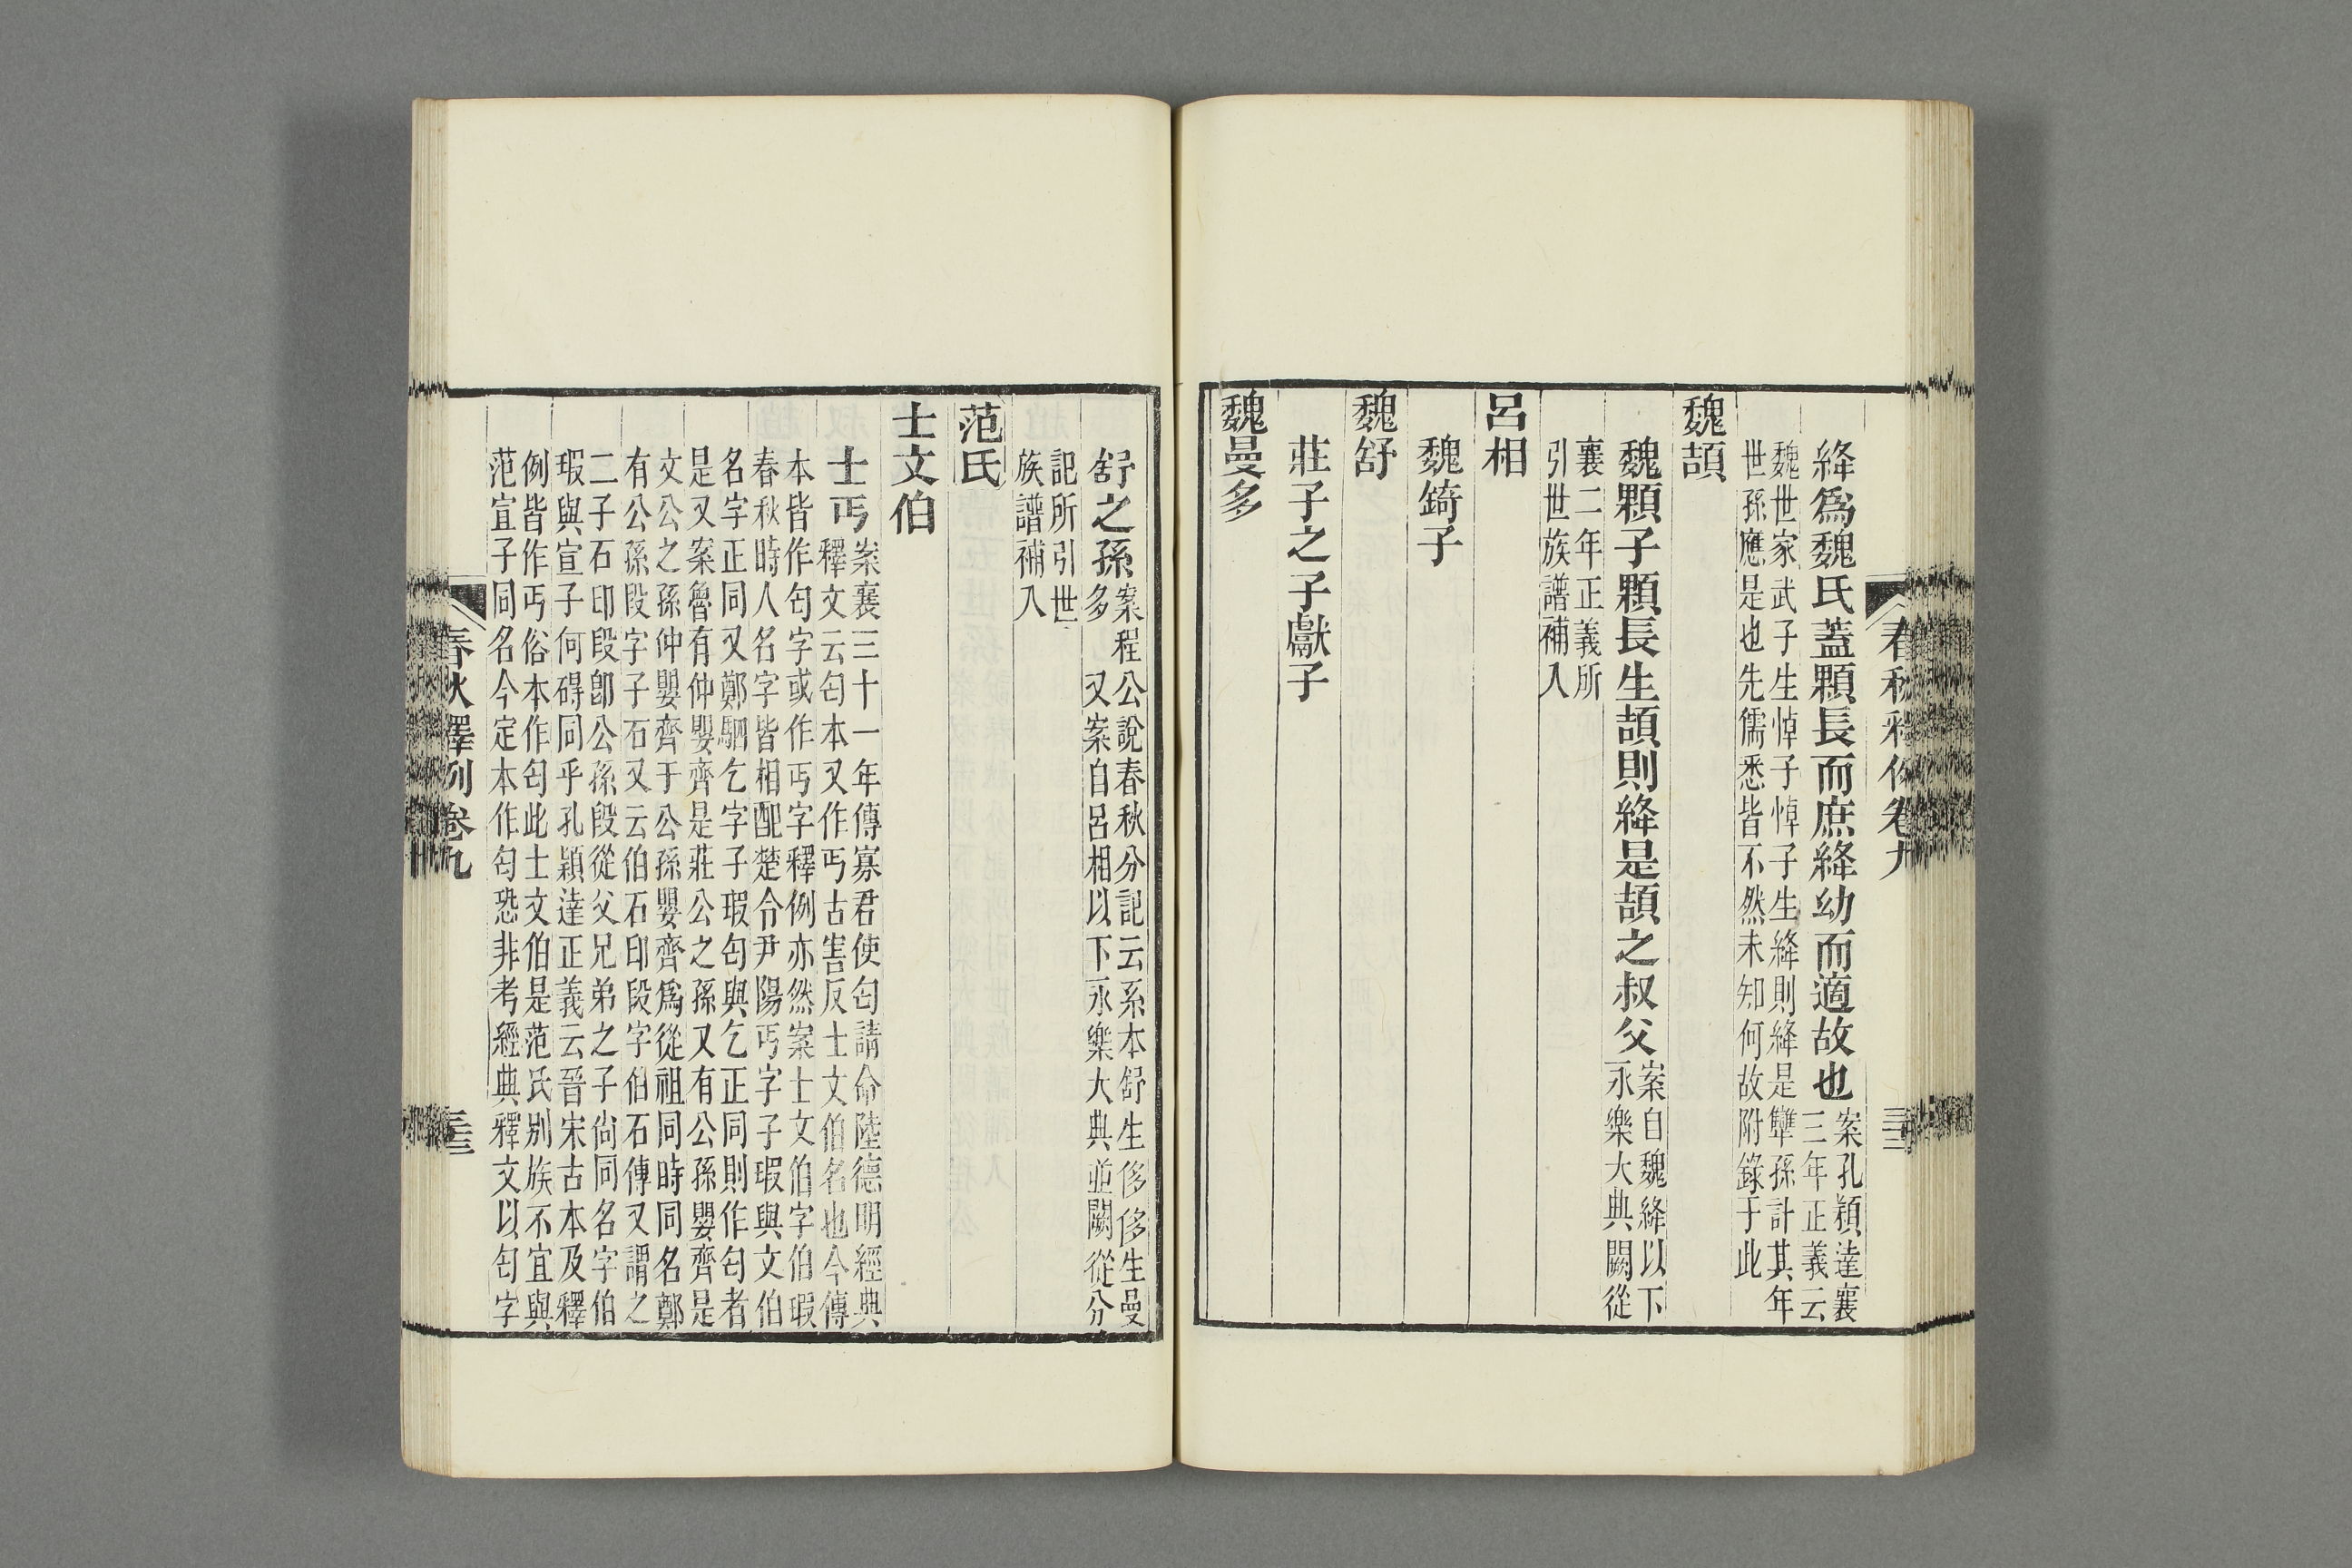 絳爲魏氏蓋顆長而庶絳幼而適故也案孔穎達襄
三年正義云
魏世家武子生悼子悼子生絳則絳是犨孫計其年
世孫應是也先儒悉皆不然未知何故附錄于此
魏頡
魏顆子顆長生頡則絳是頡之叔父案自魏絳以下
永樂大典闕從
襄二年正義所
引世族譜補入
呂相
魏錡子
魏舒
莊子之子獻子
魏曼多
舒之孫案程公說春秋分記云系本舒生侈侈生曼
多 又案自呂相以下永樂大典並闕從分
記所引世
族譜補入
范氏
士文伯
士丏案襄三十一年傳寡君使匄請命陸德明經典
釋文云匄本又作丏古害反士文伯名也今傳
本皆作匄字或作丏字釋例亦然案士文伯字伯瑕
春秋時人名字皆相配楚令尹陽丏字子瑕與文伯
名字正同又鄭駟乞字子瑕匄與乞正同則作匄者
是又案魯有仲嬰齊是莊公之孫又有公孫嬰齊是
文公之孫仲嬰齊于公孫嬰齊爲從祖同時同名鄭
有公孫段字子石又云伯石印段字伯石傳又謂之
二子石印段卽公孫段從父兄弟之子尙同名字伯
瑕與宣子何碍同乎孔穎達正義云晉宋古本及釋
例皆作丏俗本作匄此士文伯是范氏别族不宜與
范宣子同名今定本作匄恐非考經典釋文以匄字
春秋釋例卷九